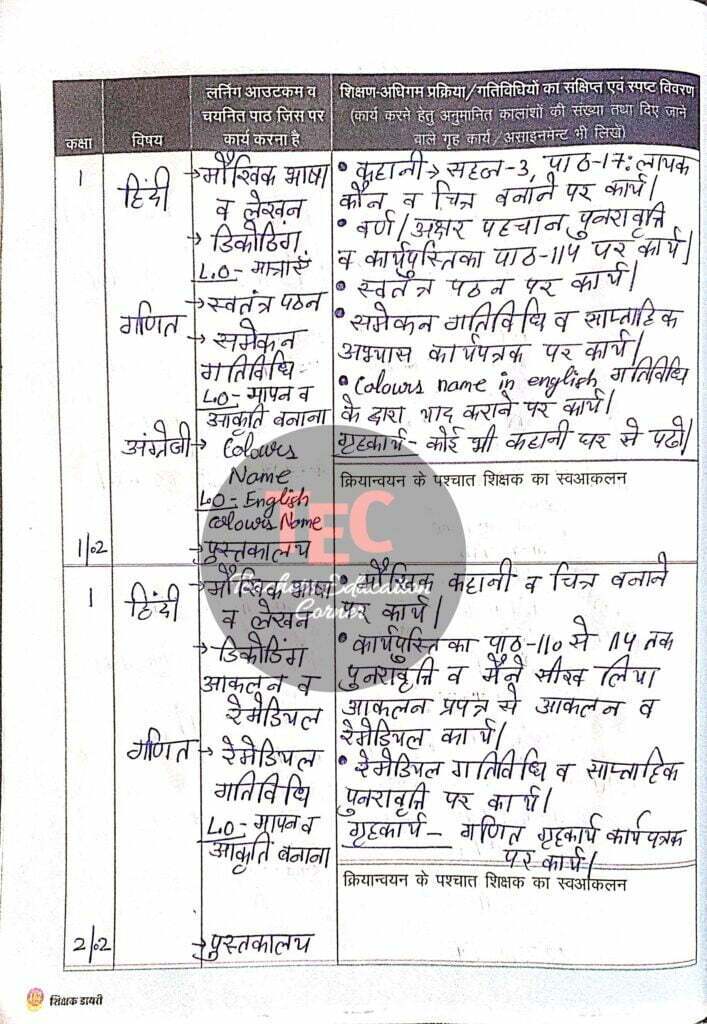 कक्षा
विषय
लर्निंग आउटकम व
चयनित पाठ जिस पर
कार्य करना है
शिक्षण-अधिगम प्रक्रिया/गतिविधियों का संक्षिप्त एवं स्पष्ट विवरण
(कार्य करने हेतु अनुमानित कालाशों की संख्या तथा दिए जाने
वाले गृह कार्य/असाइनमेंट भी लिखें)
1
हिंदी
→ मौखिक भाषा
व लेखन
→ डिकोडिंग
L.O - मात्राएँ
गणित
→ स्वतंत्र पठन
→ समेकन
गतिविधि
L.O - मापन व
आकृति बनाना
अंग्रेजी → Colours
Name
L.O - English
Colours Name
1/02
→ पुस्तकालय
• कहानी → सहज-3, पाठ-17: लायक
कौन व चित्र बनाने पर कार्य।
• वर्ण/अक्षर पहचान पुनरावृत्ति
व कार्यपुस्तिका पाठ-114 पर कार्य।
• स्वतंत्र पठन पर कार्य।
• समेकन गतिविधि व साप्ताहिक
अभ्यास कार्यपत्रक पर कार्य।
• Colours name in english गतिविधि
के द्वारा याद कराने पर कार्य।
गृहकार्य - कोई भी कहानी घर से पढो।
क्रियान्वयन के पश्चात शिक्षक का स्वआकलन
TEC
Teachers Education
Corner
1
हिंदी
→ मौखिक भाषा
व लेखन
→ डिकोडिंग
आकलन व
रेमेडियल
गणित → रेमेडियल
गतिविधि
L.O - मापन व
आकृति बनाना
2/02
→ पुस्तकालय
• मौखिक कहानी व चित्र बनाने
पर कार्य।
• कार्यपुस्तिका पाठ-110 से 114 तक
पुनरावृत्ति व मैंने सीख लिया
आकलन प्रपत्र से आकलन व
रेमेडियल कार्य।
• रेमेडियल गतिविधि व साप्ताहिक
पुनरावृत्ति पर कार्य।
गृहकार्य - गणित गृहकार्य कार्यपत्रक
पर कार्य।
क्रियान्वयन के पश्चात शिक्षक का स्वआकलन
शिक्षक डायरी